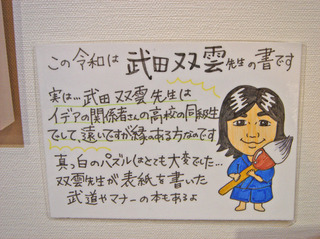 この令和は 武田双雲先生の書です
実は…武田双雲先生は
イデアの関係者さんの高校の同級生
でして、遠いですが縁のある方なのです
真っ白のパズルはとても大変でした…
双雲先生が表紙を書いた
武道やマナーの本もあるよ